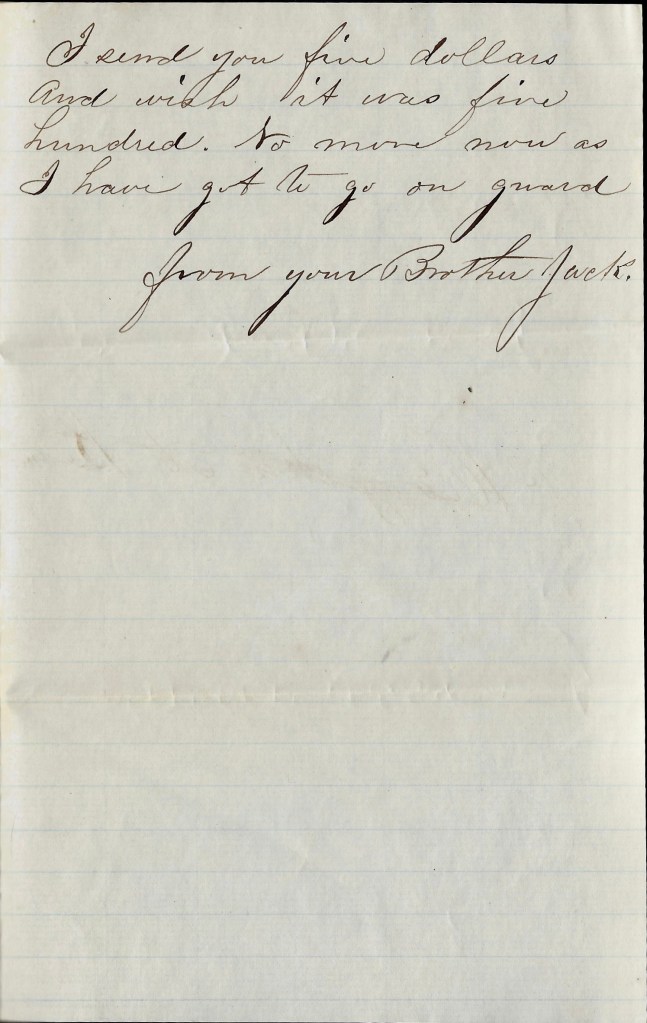 I send you five dollars
And wish it was five
hundred. No more now as
I have got to go on guard
from your Brother Jack.